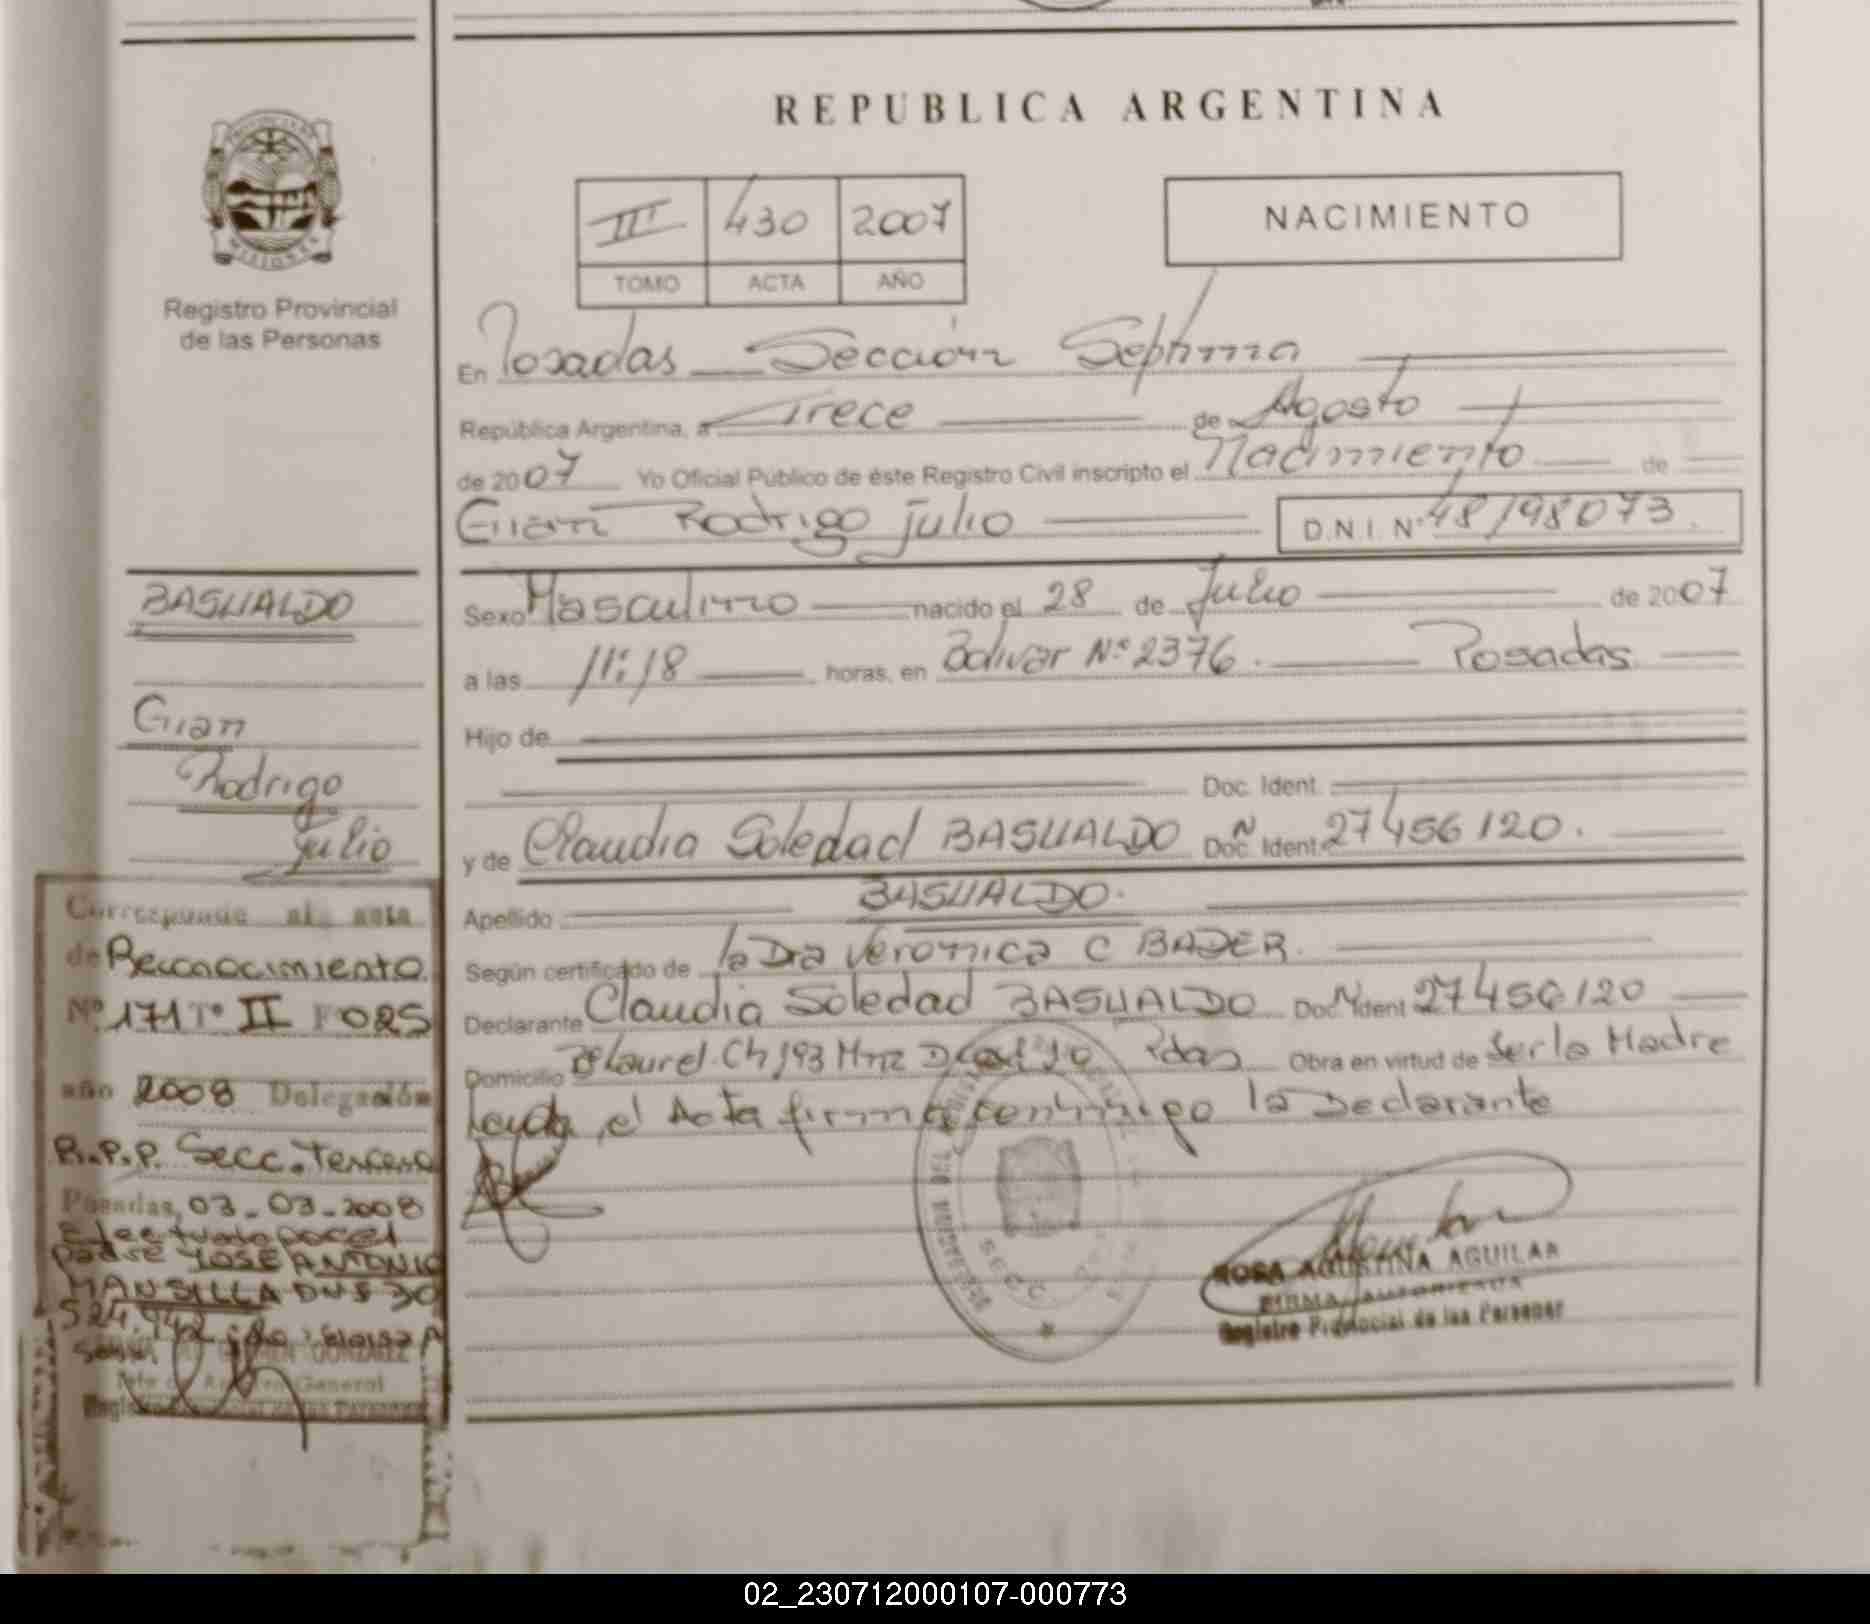 REPUBLICA ARGENTINA
III 430 2007
TOMO ACTA AÑO
NACIMIENTO
Registro Provincial
de las Personas
En Posadas Sección Séptima
República Argentina, a Trece de Agosto
de 2007 Yo Oficial Público de éste Registro Civil inscripto el Nacimiento de
Gian Rodrigo Julio D.N.I. Nº 48198073.
Sexo Masculino nacido el 28 de Julio de 2007
a las 11:18 horas, en Bolivar Nº 2376. Posadas
Hijo de
Doc. Ident.
y de Claudia Soledad BASUALDO Doc. Ident. 27456120.
Apellido BASUALDO.
Según certificado de la Dra Veronica C BADER.
Declarante Claudia Soledad BASUALDO Doc. Ident 27456120
Domicilio Bº Laurel Ch 193 Mnz D Pdas Obra en virtud de Ser la Madre
Leyda el Acta firma conmigo la Declarante
ROSA AGUSTINA AGUILAR
FIRMA AUTORIZADA
Registro Provincial de las Personas
BASUALDO
Gian
Rodrigo
Julio
Corresponde al acta
de Reconocimiento
Nº 171 Tº II F 025
año 2008 Delegación
R.P.P. Secc. Tercera
Posadas, 03-03-2008
Efectuado por el
padre JOSE ANTONIO
MANSILLA DNI 30
524.942
GONZALEZ
Jefe de Archivo General
Registro Provincial de las Personas
02_230712000107-000773